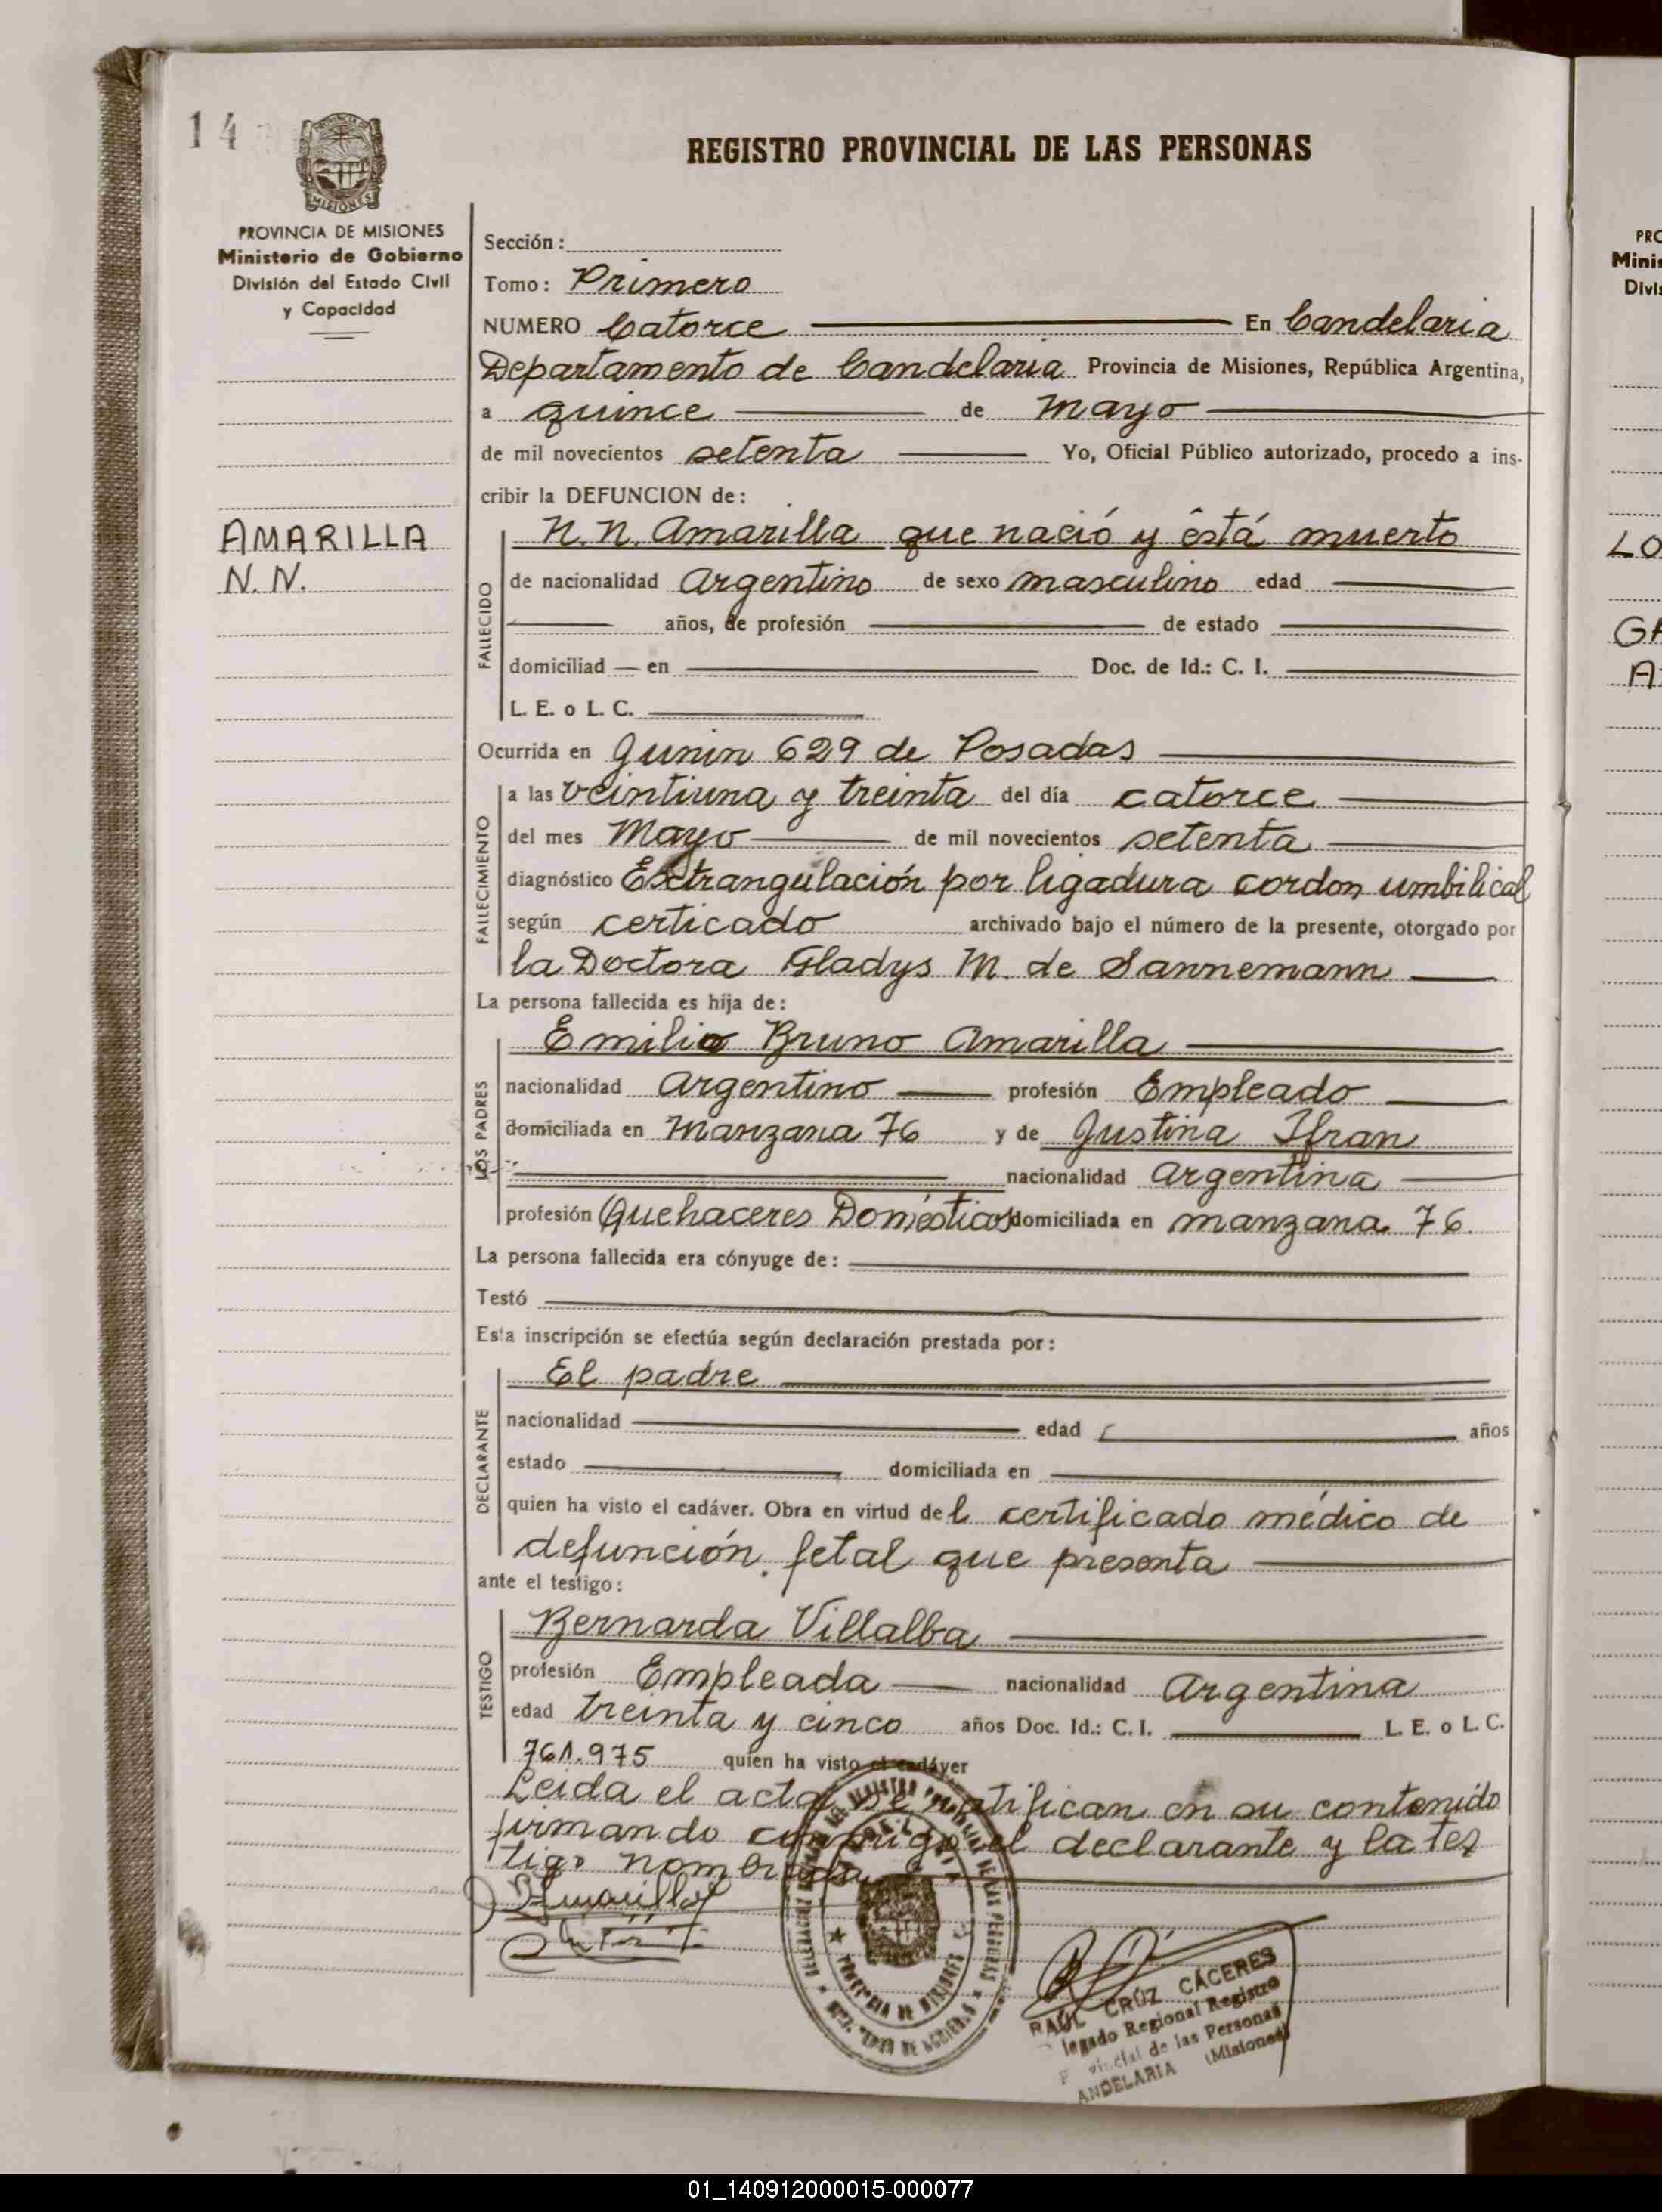 14
REGISTRO PROVINCIAL DE LAS PERSONAS
MISIONES
PROVINCIA DE MISIONES
Ministerio de Gobierno
División del Estado Civil
y Capacidad
AMARILLA
N. N.
Sección:
Tomo: Primero
NUMERO Catorce En Candelaria
Departamento de Candelaria Provincia de Misiones, República Argentina,
a quince de Mayo
de mil novecientos setenta Yo, Oficial Público autorizado, procedo a ins-
cribir la DEFUNCION de:
FALLECIDO
N. N. Amarilla que nació y está muerto
de nacionalidad Argentino de sexo masculino edad
años, de profesión de estado
domiciliad — en Doc. de Id.: C. I.
L. E. o L. C.
Ocurrida en Junin 629 de Posadas
FALLECIMIENTO
a las veintiuna y treinta del día catorce
del mes Mayo de mil novecientos setenta
diagnóstico Exctrangulación por ligadura cordon umbilical
según certicado archivado bajo el número de la presente, otorgado por
la Doctora Gladys M. de Sannemann
La persona fallecida es hija de:
LOS PADRES
Emilio Bruno Amarilla
nacionalidad Argentino profesión Empleado
domiciliada en Manzana 76 y de Justina Ifran
nacionalidad Argentina
profesión Quehaceres Domésticos domiciliada en manzana 76.
La persona fallecida era cónyuge de:
Testó
Esta inscripción se efectúa según declaración prestada por:
DECLARANTE
El padre
nacionalidad edad años
estado domiciliada en
quien ha visto el cadáver. Obra en virtud del certificado médico de
defunción fetal que presenta
ante el testigo:
TESTIGO
Bernarda Villalba
profesión Empleada nacionalidad Argentina
edad treinta y cinco años Doc. Id.: C. I. L. E. o L. C.
761.975 quien ha visto el cadáver
Leida el acta se ratifican en su contenido
firmando conmigo el declarante y la tes
tigo nombrada
Amarilla
RAÚL CRÚZ CÁCERES
legado Regional Registro
de las Personas
ANDELARIA (Misiones)
PRO
Minis
Divis
LO
GA
A
01_140912000015-000077